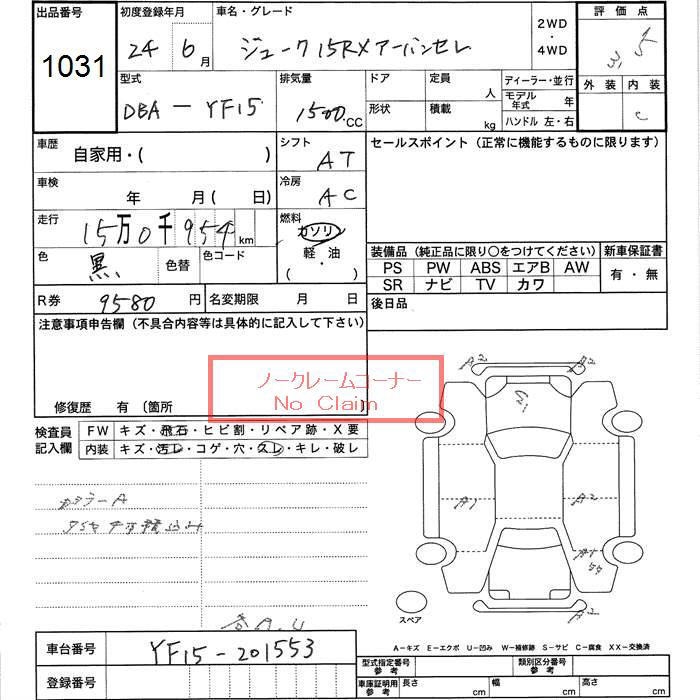 出品番号 初度登録年月 車名・グレード 評価点
1031 24 6月 ジューク15RXアーバンセレ 2WD・4WD 3.5
型式 排気量 ドア 定員 ディーラー・並行 外装 内装
DBA-YF15 1500cc 人 モデル年式 年 C
形状 積載 kg ハンドル 左・右
車歴 自家用・( ) シフト AT セールスポイント (正常に機能するものに限ります)
車検 年 月( 日) 冷房 AC
走行 15万0千954km 燃料 ガソリン
色 黒 色替 色コード 軽・油 ( ・ )
装備品 (純正品に限り〇をつけてください) 新車保証書
PS PW ABS エアB AW 有・無
SR ナビ TV カワ
R券 9580円 名変期限 月 日 後日品
注意事項申告欄 (不具合内容等は具体的に記入して下さい)
ノークレームコーナー
No Claim
修復歴 有 〔箇所 〕
検査員記入欄 FW キズ・飛石・ヒビ割・リペア跡・X要
内装 キズ・汚レ・コゲ・穴・スレ・キレ・破レ
カラーA
A2
A3
A1
A2
A2
スペア
A-キズ E-エクボ U-凹み W-補修跡 S-サビ C-腐食 XX-交換済
車台番号 YF15-201553
登録番号
型式指定番号 参考 類別区分番号 参考
車庫証明用 参考 長さ cm 幅 cm 高さ cm